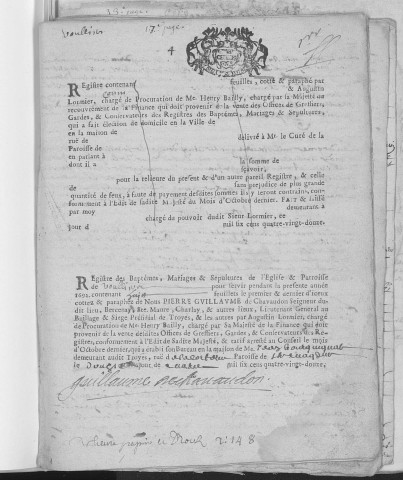 17e page
4
Registre contenant feuilles, cotté & paraphé par
& Augustin
Lormier, chargé de Procuration de Me. Henry Bailly, chargé par Sa Majesté au
recouvrement de la Finance qui doit provenir de la vente des Offices de Greffiers,
Gardes, & Conservateurs des Registres des Baptêmes, Mariages & Sepultures,
qui a fait élection de domicile en la Ville de
en la maison de délivré à Mr. le Curé de la
ruë de
Paroisse de
en parlant à
dont il a la somme de
sçavoir,
pour la relieure du present & d'un autre pareil Registre, & celle
de sans prejudice de plus grande
quantité de sens, à faute de payement desdites sommes ils y seront contrains, con-
formement à l'Edit de sadite M. jesté du Mois d'Octobre dernier. FAIT & laissé
par moy demeurant à
chargé de pouvoir dudit Sieur Lormier, ce
jour d mil six cens quatre-vingt-douze.
Registre des Baptêmes, Mariages & Sepultures de l'Eglise & Paroisse
de pour servir pendant la presente année
1692. contenant feuilles le premier & dernier d'iceux
cottez & paraphez de Nous PIERRE GUILLAUME de Chavaudon Seigneur du-
dit lieu, Bercenay, Ste Maure, Charlay, & autres lieux, Lieutenant General au
Bailliage & Siege Presidial de Troyes, & les autres par Augustin Lormier, chargé
de Procuration de Me. Henry Bailly, chargé par Sa Majesté de la Finance qui doit
provenir de la vente desdites Offices de Greffiers, Gardes, & Conservateurs, des Re-
gistres, conformement à l'Edit de Sadite Majesté, & tarif arresté au Conseil le mois
d'Octobre dernier, qui a érabli son Bureau en la maison de Me.
demeurant audit Troyes, ruë d Paroisse de
le jour de mil six cens quatre-vingt-douze.
Guillaume de Chavaudon